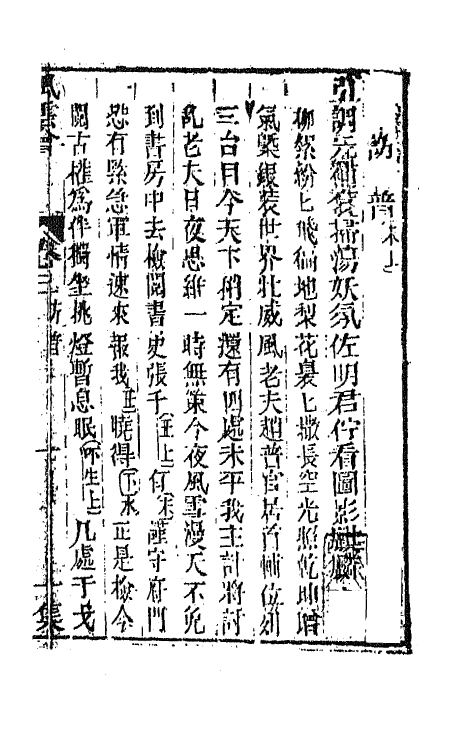 訪普 末上
引調元神袞掃蕩妖氛佐明君佇看圖影
柳絮紛匕飛徧地梨花裊匕撒長空光照乾坤增
氣槩銀裝世界壯威風老夫趙普官居首輔位列
三台目今天下稍定還有四處未平我主計將討
亂老夫日夜思維一時無策今夜風雪漫天不免
到書房中去檢閱書史張千 丑上 有 末 謹守府門
恐有緊急軍情速來報我 丑 曉得 下 末 正是檢今
閱古權爲作獨坐挑燈暫息眠 小生上 几處干戈
風雲會 卷三 訪普 集